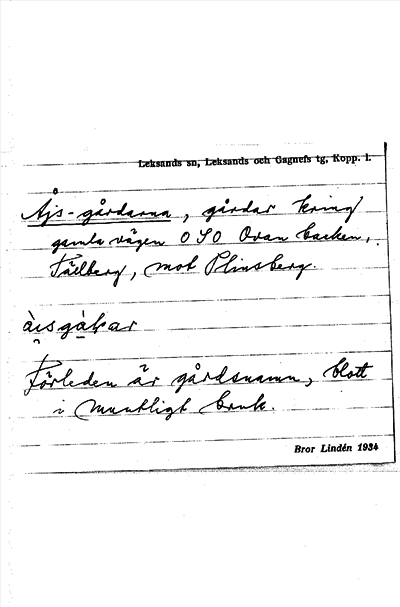 Leksands sn, Leksands och Gagnefs tg, Kopp. l.
Åjs-gårdarna, gårdar kring
gamla vägen OSO Ovan backen,
Tällberg, mot Plinsberg.
àisgàkar
Förleden är gårdsnamn, blott
i muntligt bruk.
Bror Lindén 1934